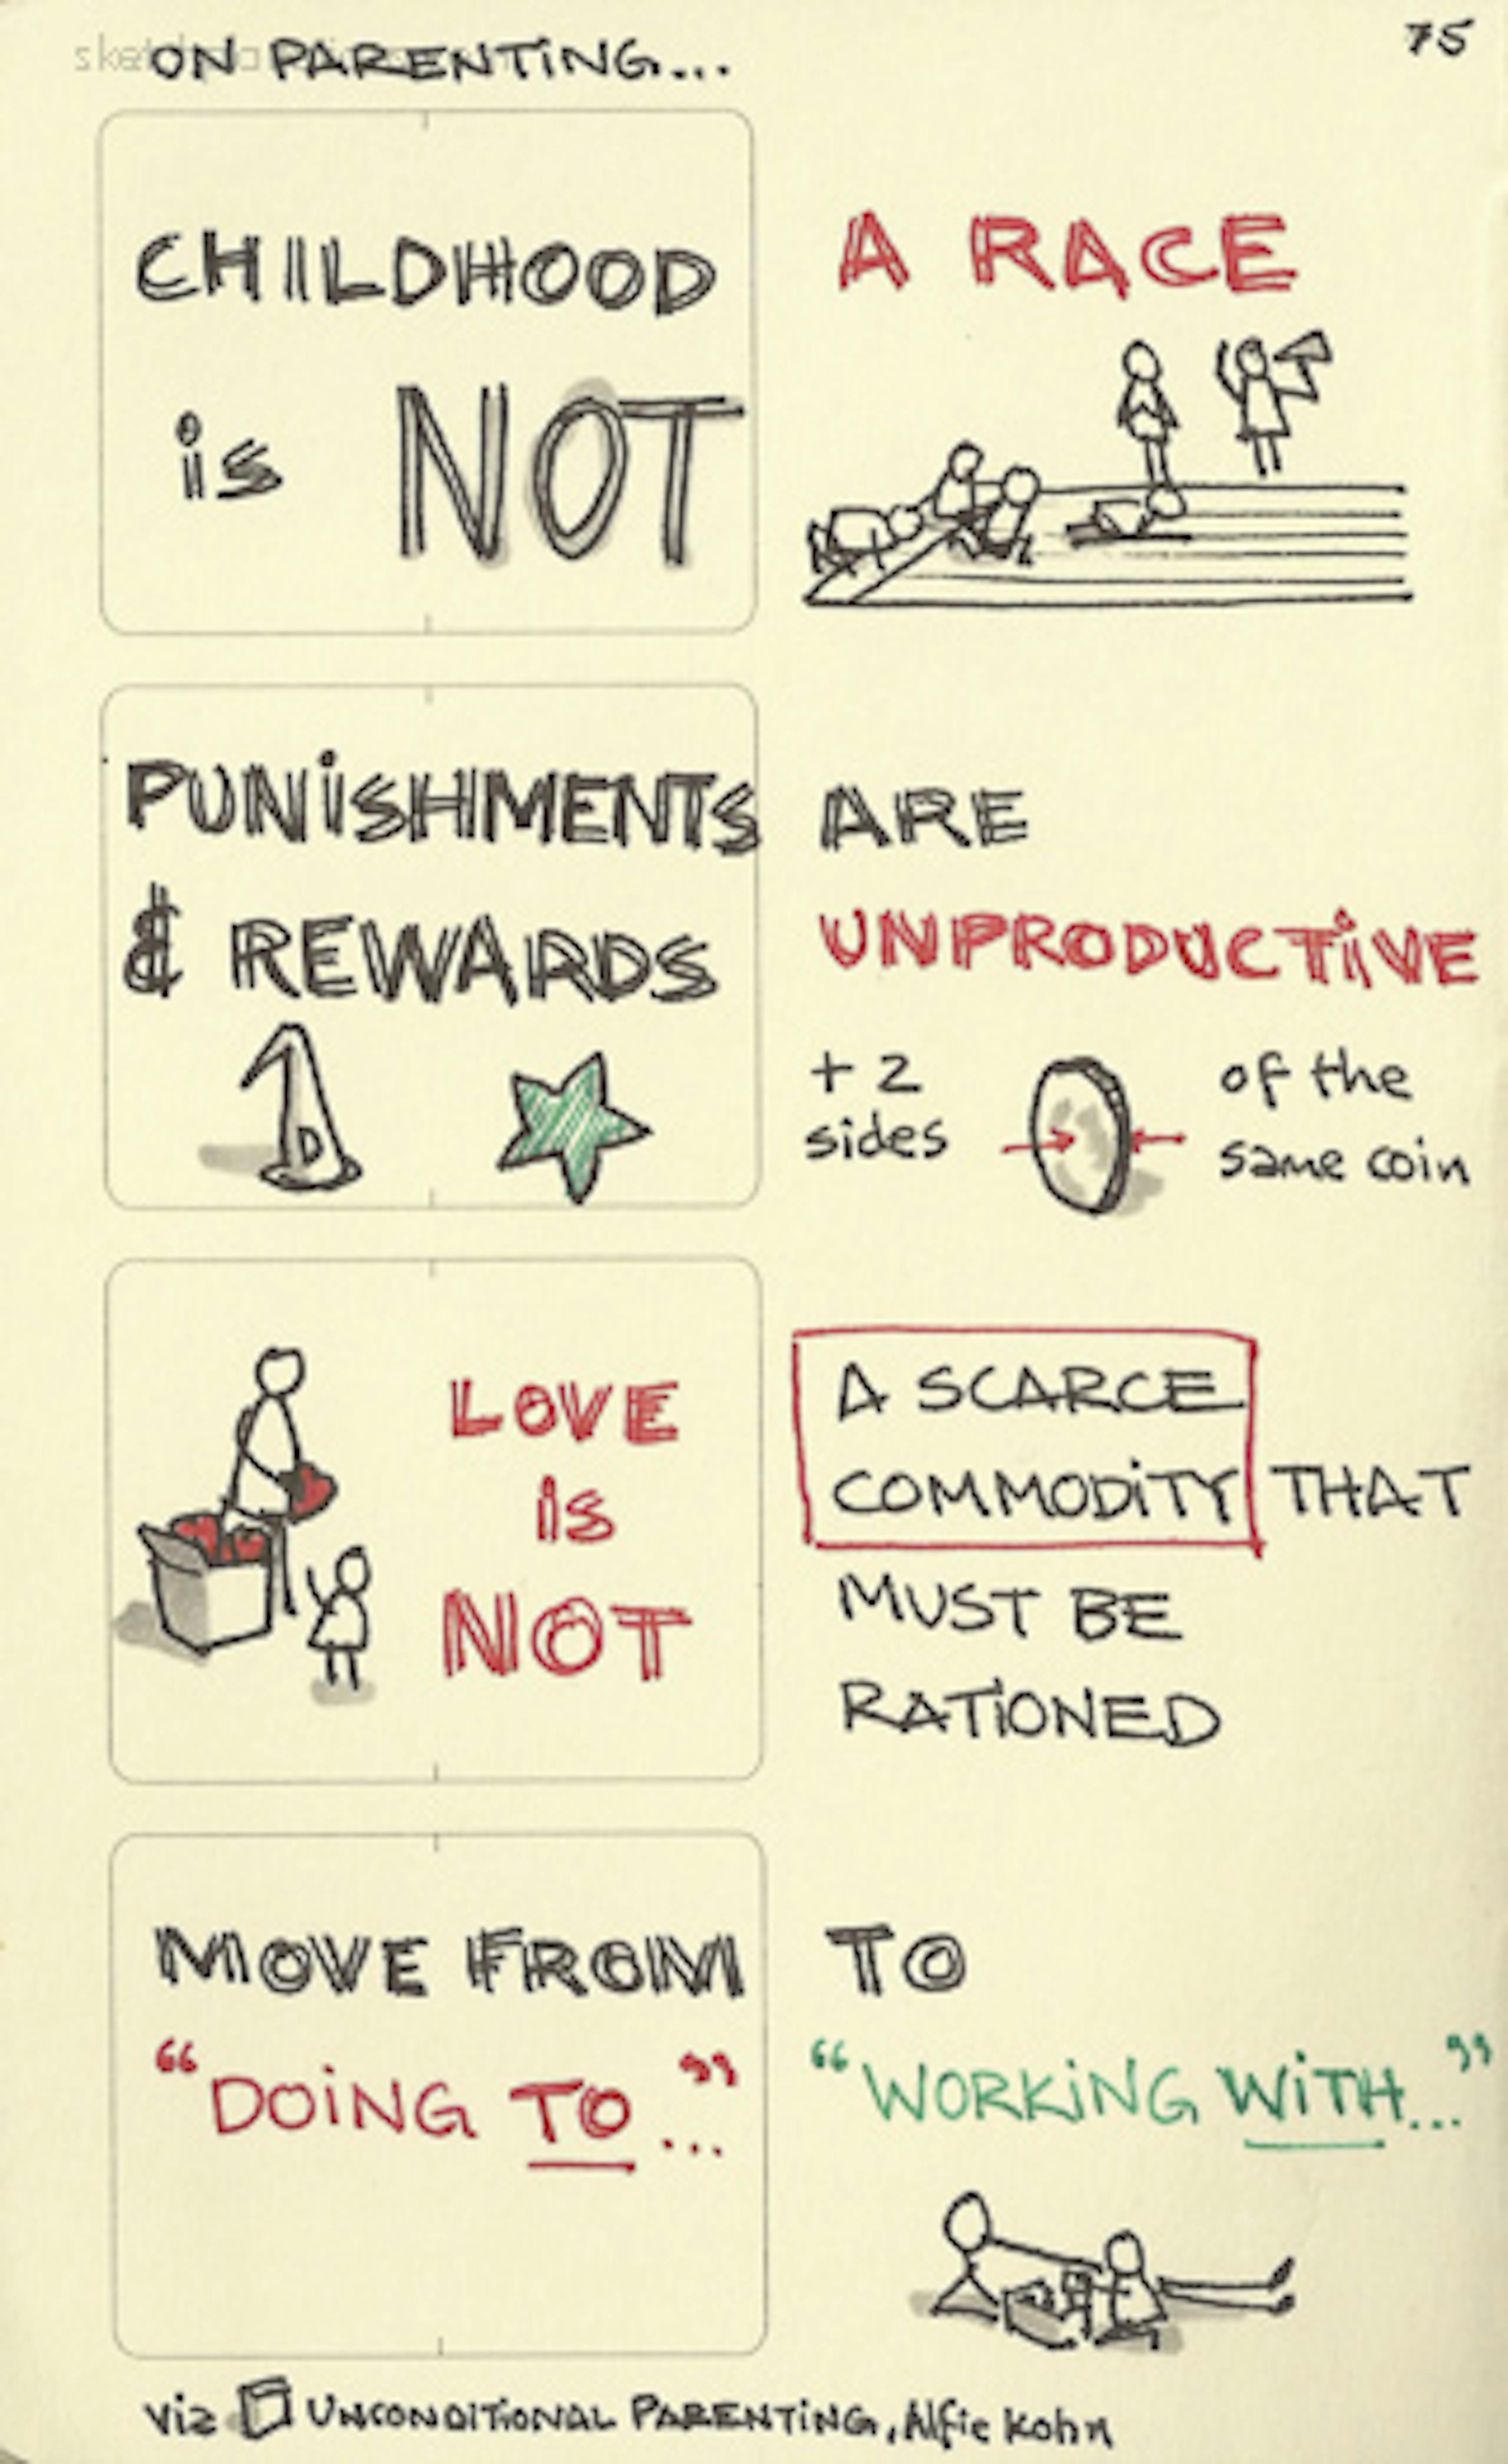 ON PARENTING...
75
CHILDHOOD
is NOT
A RACE
PUNiSHMENTS
& REWARDS
D
ARE
UNPRODUCTiVE
+ 2
sides
of the
same coin
LOVE
is
NOT
A SCARCE
COMMODiTY THAT
MUST BE
RATiONED
MOVE FROM
"DOiNG TO..."
TO
"WORKiNG WiTH..."
via UNCONDiTiONAL PARENTiNG, Alfie Kohn